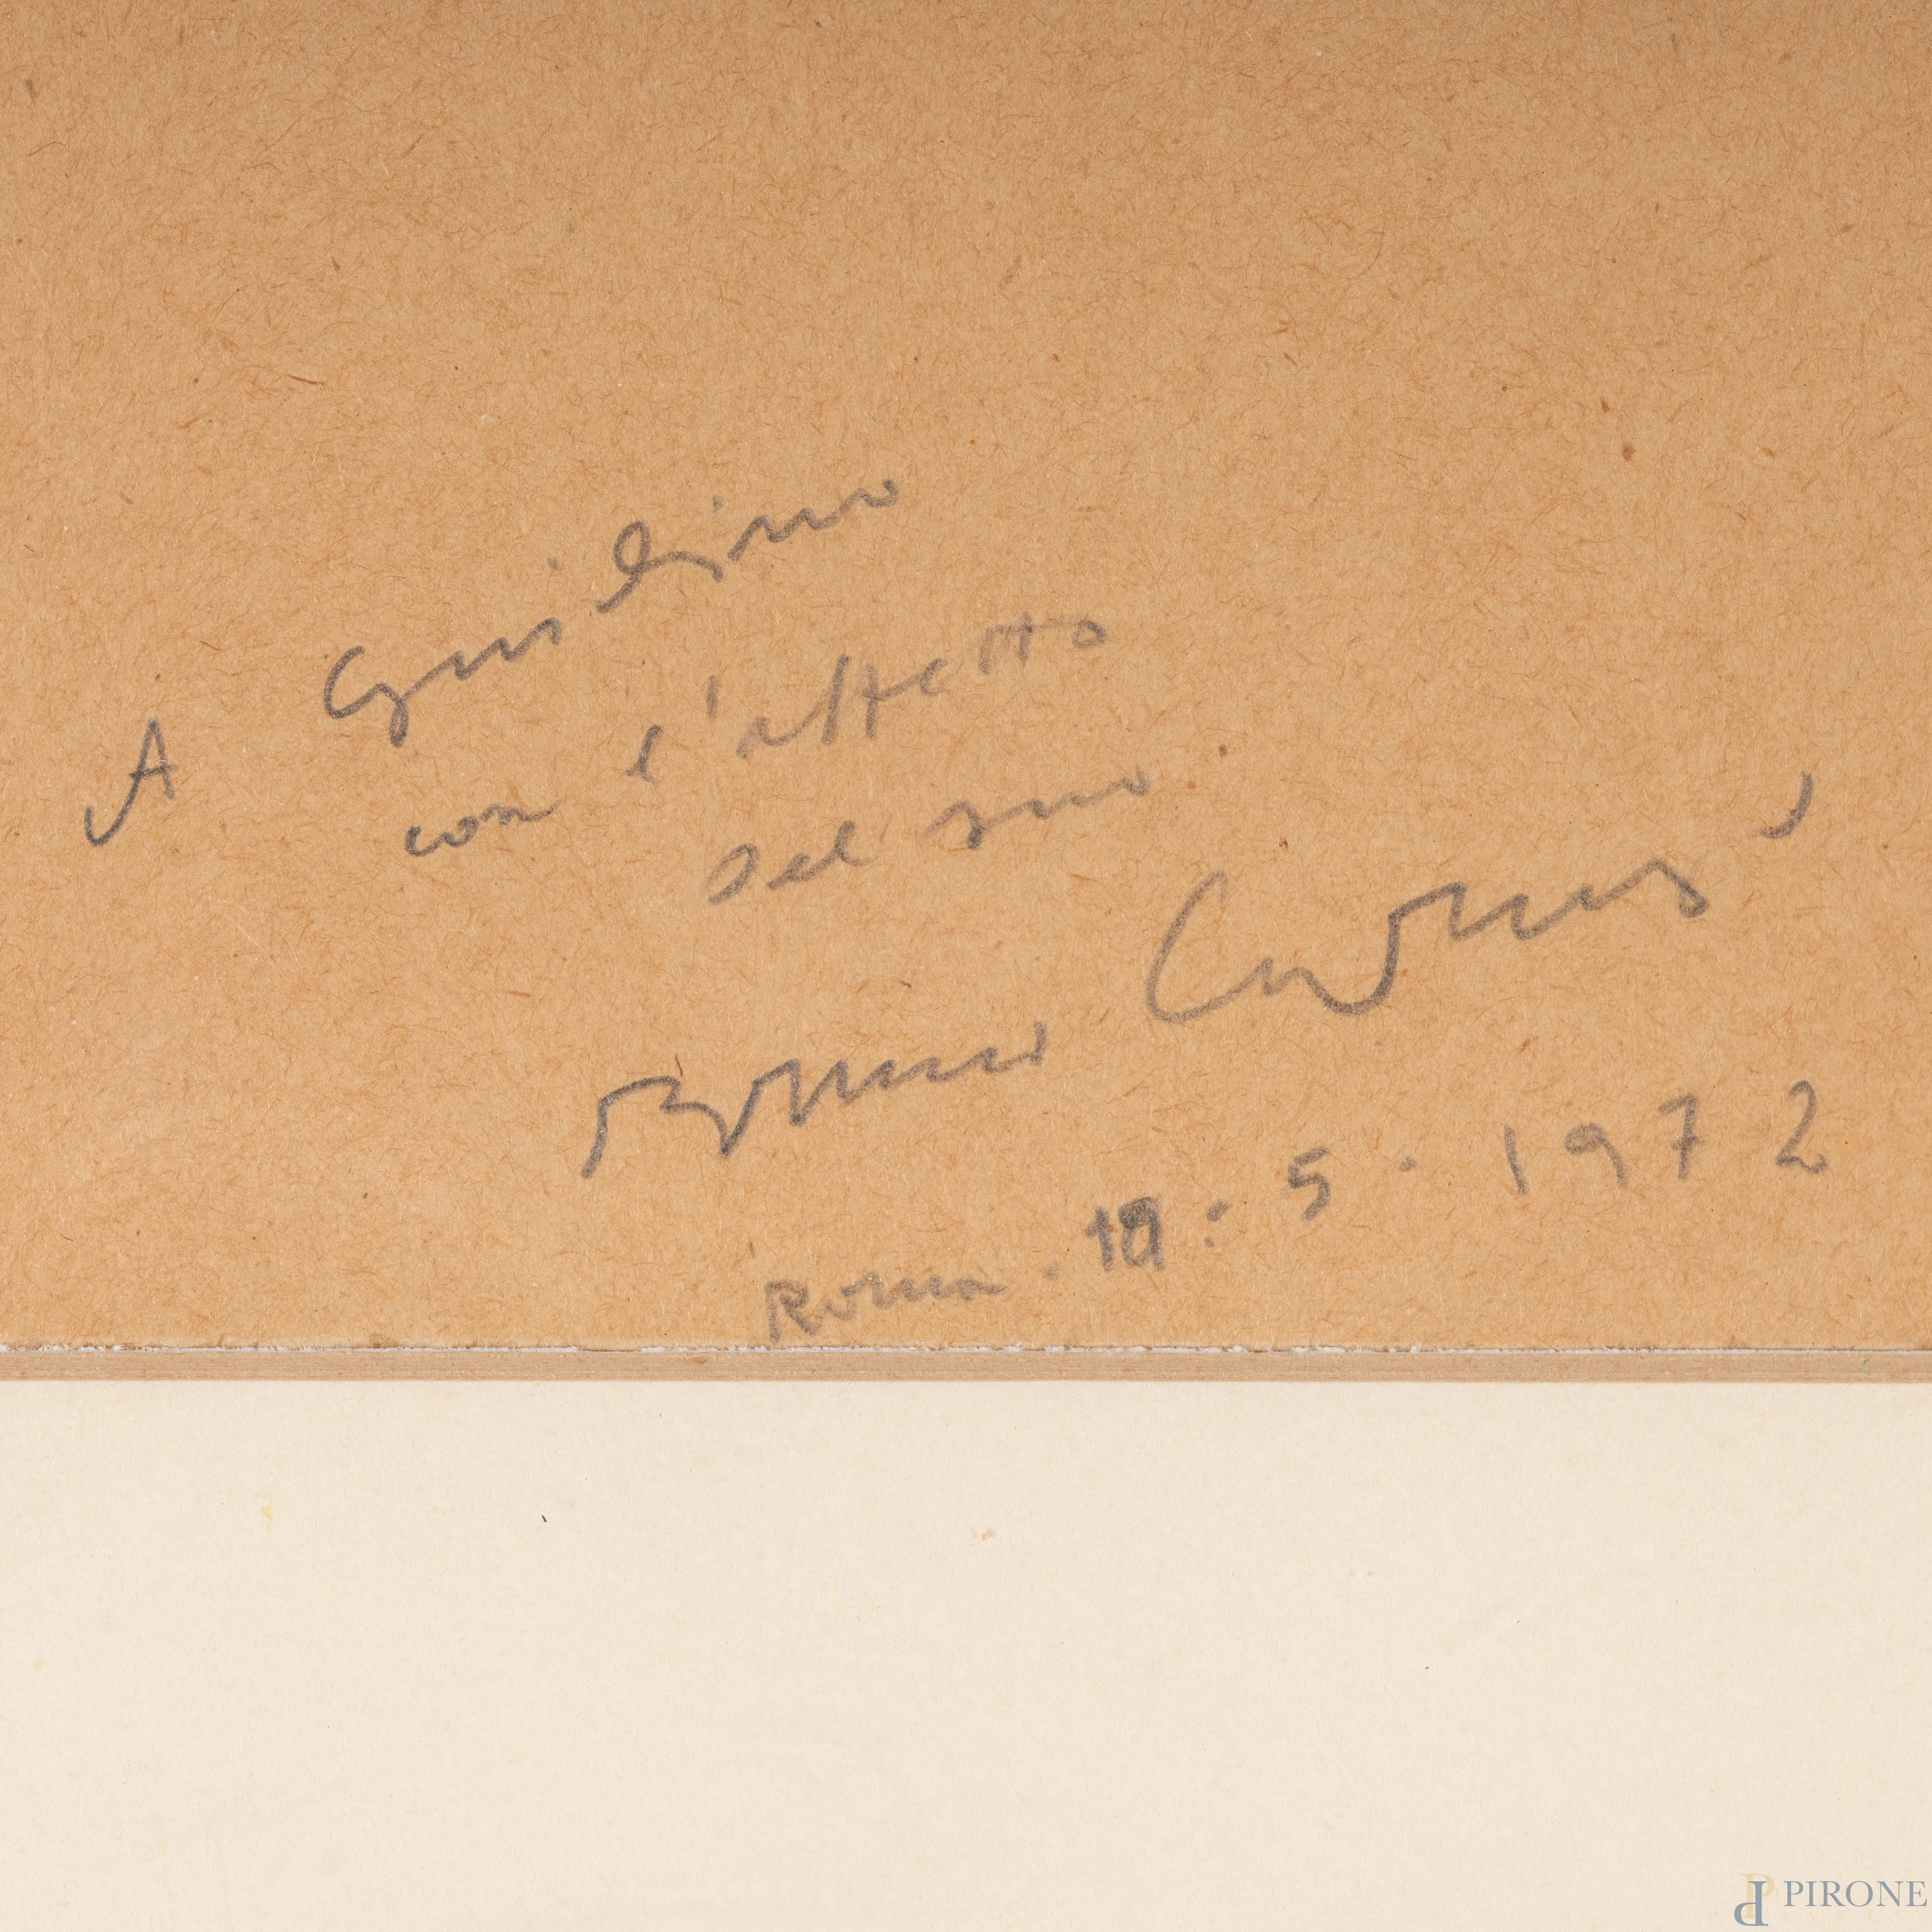 A Guidino
con l'affetto
del suo
Roma . 19 : 5 . 1972
PIRONE